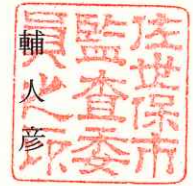 佐世保市
監査委
員之印
輔人彦